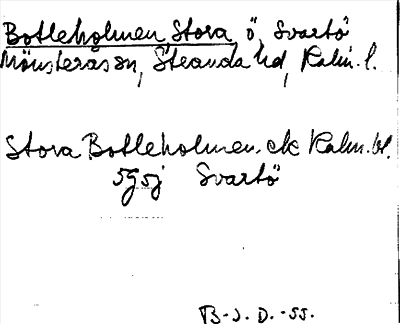 Botleholmen Stora, ö, Svartö
Mönsterås sn, Stranda hd, Kalm. l.
Stora Botleholmen ek Kalm. bl.
5g5j Svartö
B-J. D. -55.